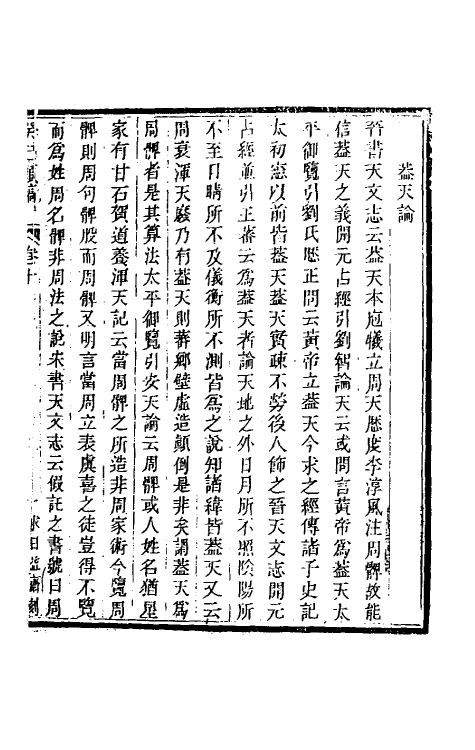 蓋天論
晉書天文志云蓋天本庖犧立周天歷度李淳風注周髀故能
信蓋天之義開元占經引劉智論天云或問言黃帝爲蓋天太
平御覽引劉氏歷正問云黃帝立蓋天今求之經傳諸子史記
太初憲以前皆蓋天蓋天實疎不勞後人飾之晉天文志開元
占經並引王蕃云爲蓋天者論天地之外日月所不照陰陽所
不至日睛所不及儀衡所不測皆爲之說知諸緯皆蓋天又云
周衰渾天廢乃有蓋天則蕃鄉壁虛造顛倒是非矣謂蓋天爲
周髀者是其算法太平御覽引安天論云周髀或人姓名猶星
家有甘石賀道養渾天記云當周髀之所造非周家術今覽周
髀則周句髀股而周髀又明言當周立表虞喜之徒豈得不覽
而爲姓周名髀非周法之說宋書天文志云假託之書號曰周
癸巳類稿
卷十
一
求日益齋刻